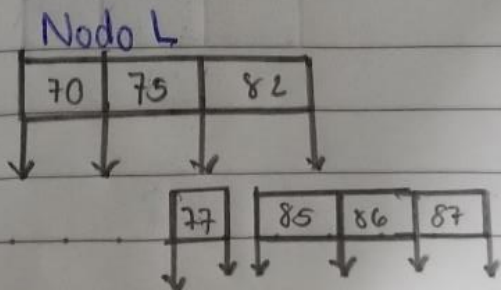 Nodo L
70 75 82
77 85 86 87